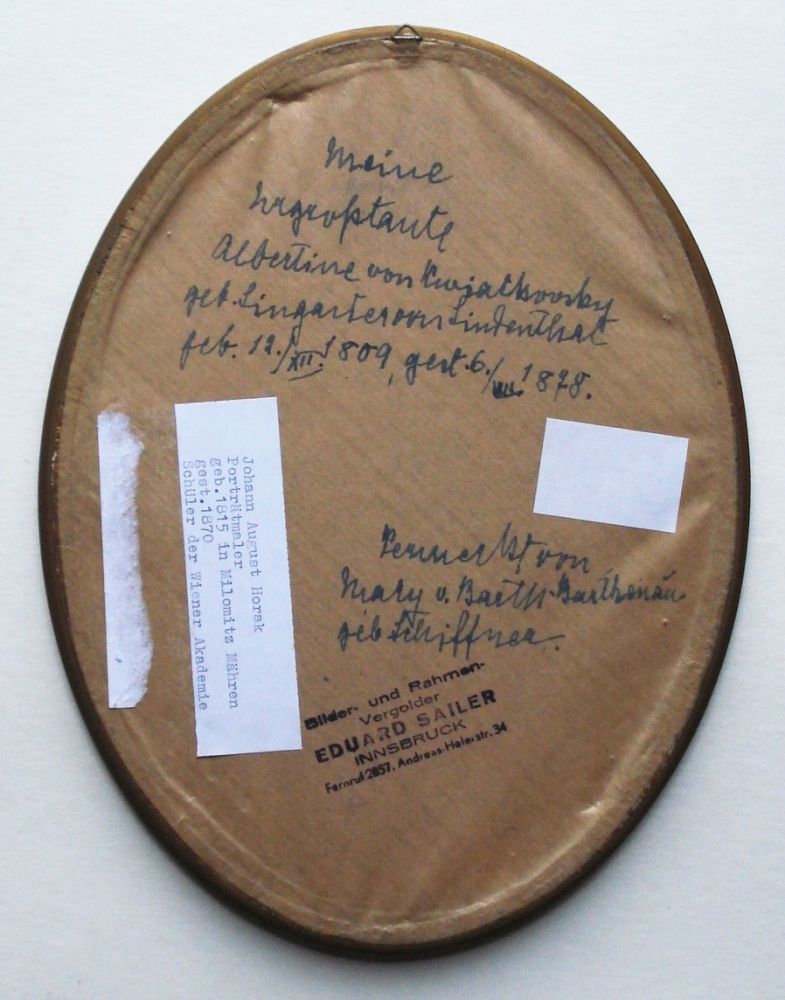 Meine
Urgroßtante
Albertine von Kwiatkovsky
geb. von Lindenthal
geb. 12./XII. 1809, gest. 6./VIII. 1878.
Johann August Horak
Porträtmaler
geb.1815 in Milomitz Mähren
gest.1870
Schüler der Wiener Akademie
Vermerkt von
Mary v. Barth-Barthenau
geb. Schiffner.
Bilder- und Rahmen-
Vergolder
EDUARD SAILER
INNSBRUCK
Fernruf 2857, Andreas-Hoferstr. 34